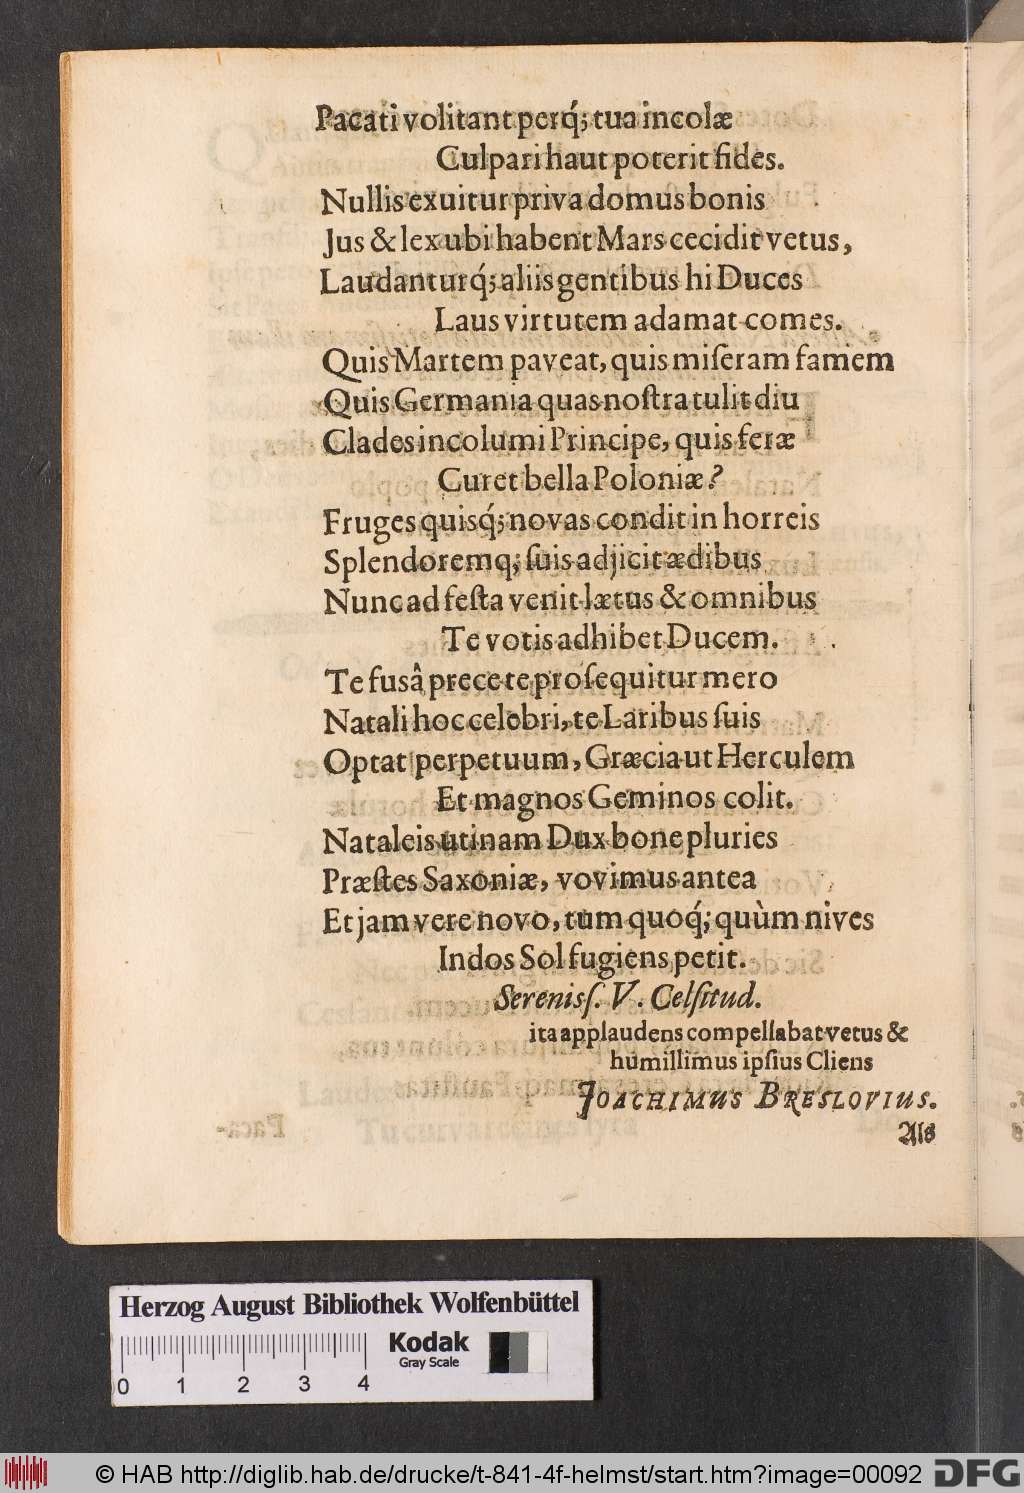 Pacati volitant perq́; tua incolæ
Culpari haut poterit fides.
Nullis exuitur priva domus bonis
Jus & lex ubi habent Mars cecidit vetus,
Laudanturq́; aliis gentibus hi Duces
Laus virtutem adamat comes.
Quis Martem paveat, quis miſeram famem
Quis Germania quas noſtra tulit diu
Clades incolumi Principe, quis feræ
Curet bella Poloniæ?
Fruges quisq́; novas condit in horreis
Splendoremq; ſuis adjicit ædibus
Nunc ad feſta venit lætus & omnibus
Te votis adhibet Ducem.
Te fusâ prece te proſequitur mero
Natali hoc celebri, te Laribus ſuis
Optat perpetuum, Græcia ut Herculem
Et magnos Geminos colit.
Nataleis utinam Dux bone pluries
Præſtes Saxoniæ, vovimus antea
Et jam vere novo, tum quoq́; quùm nives
Indos Sol fugiens petit.
Sereniſſ. V. Celſitud.
ita applaudens compellabat vetus &
humillimus ipſius Cliens
JOACHIMUS BRESLOVIUS.
Als
Paca-
Herzog August Bibliothek Wolfenbüttel
Kodak
Gray Scale
0 1 2 3 4
© HAB http://diglib.hab.de/drucke/t-841-4f-helmst/start.htm?image=00092
DFG